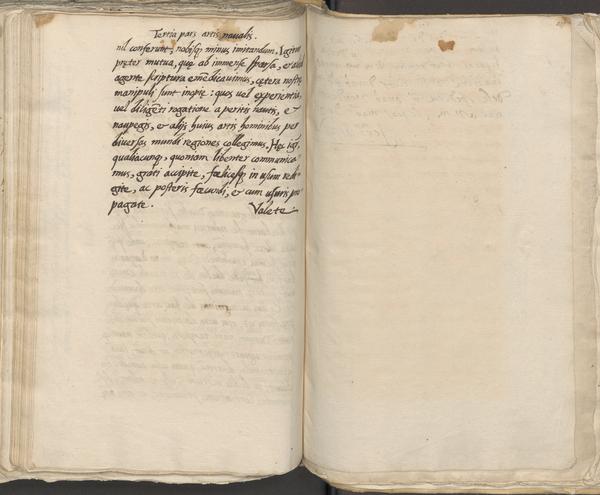 Tertia pars artis naualis.
nil conferunt, nobisq; minus imitandum. Igitur
preter mutua, quæ ab immense sparsa, et aliud
agente scriptura emēdicauimus, cetera nostri
manipuli sunt inopie: quos uel experientia,
uel diligēti rogatione a peritis nautis, et
naupegis, et alijs huius artis hominibus per
diuersas mundi regiones collegimus. Hęc igr̄,
qualiacunq, quoniam libenter communica
mus, grati accipite, fœlicesq in usum redi-
gite, ac posteris fœcundi, et cum usuris pro
pagate. Valete